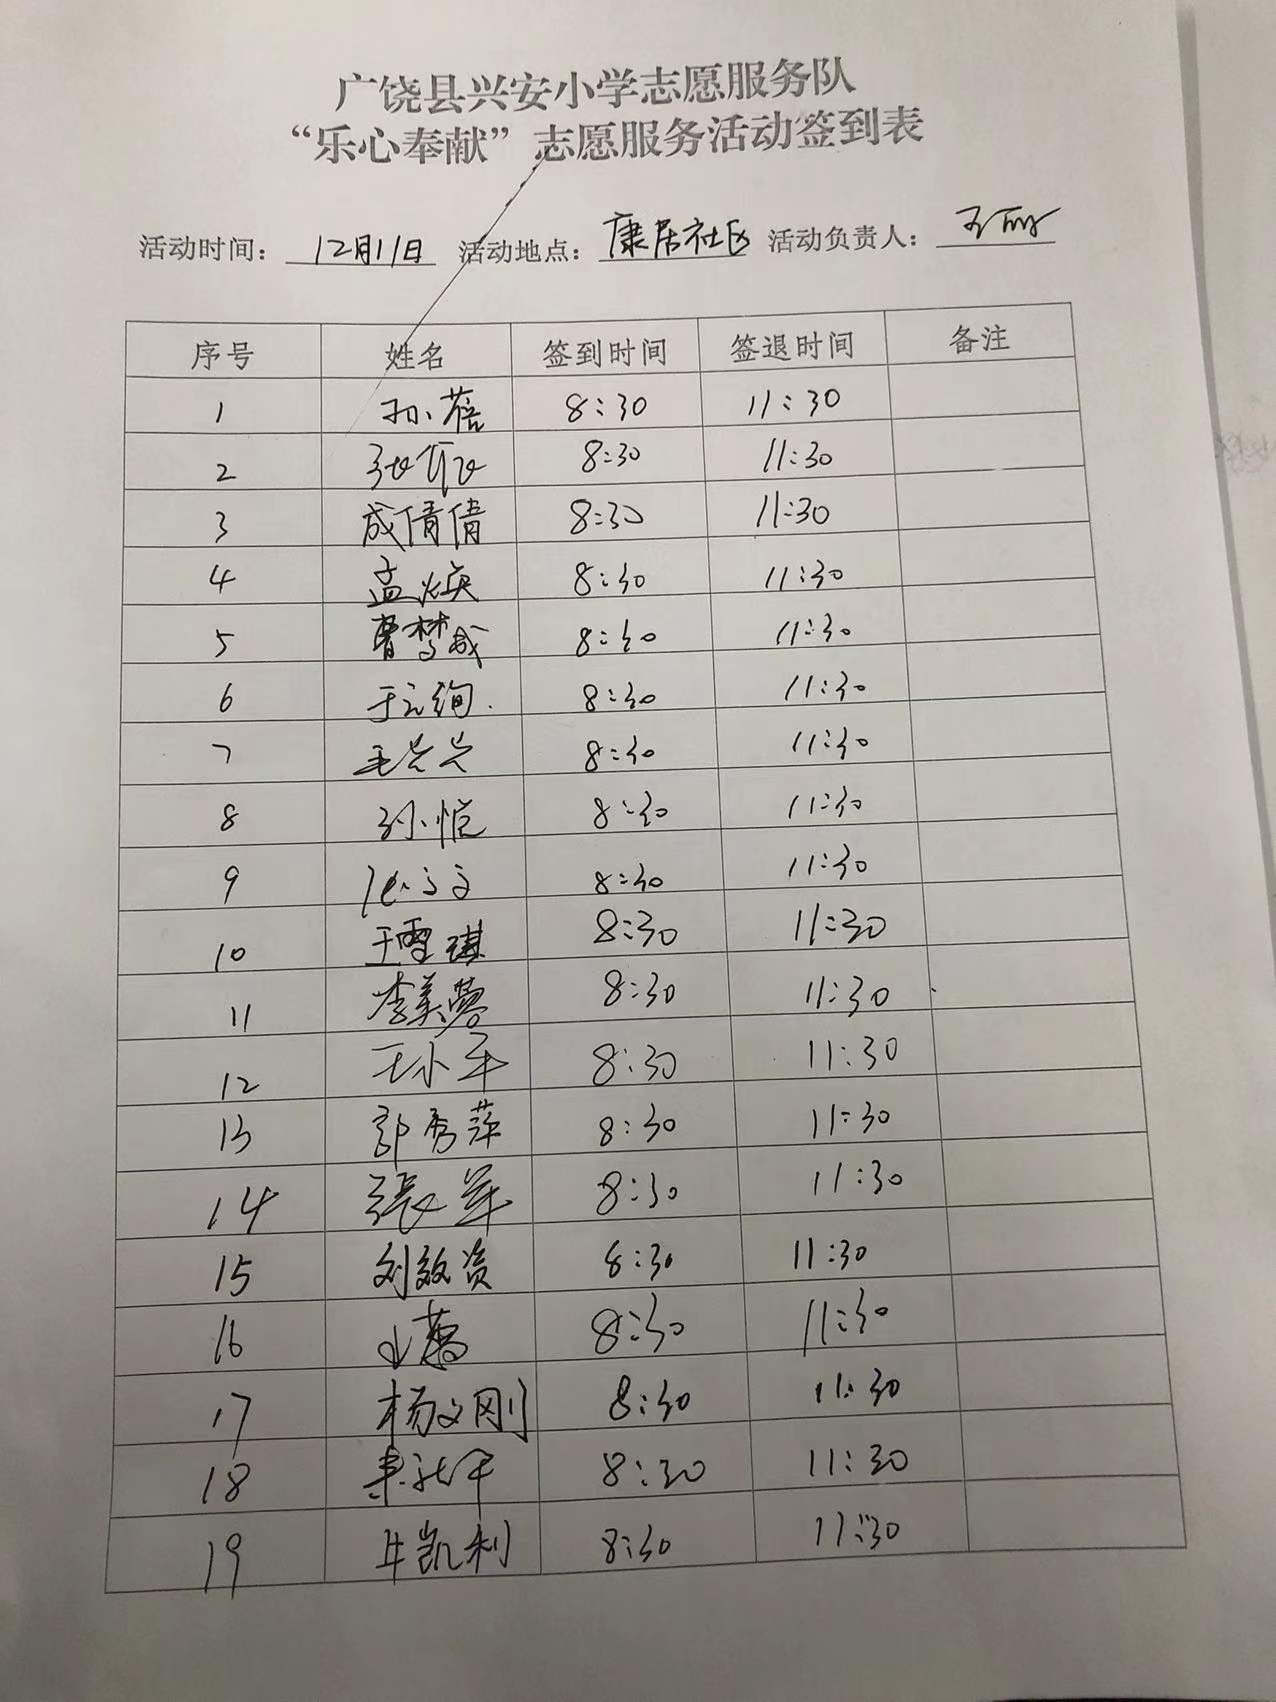 广饶县兴安小学志愿服务队
“乐心奉献”志愿服务活动签到表
活动时间：12月11日 活动地点：康居社区 活动负责人：
序号 姓名 签到时间 签退时间 备注
1 孙蓓 8:30 11:30
2 8:30 11:30
3 成倩倩 8:30 11:30
4 孟焕 8:30 11:30
5 曹梦成 8:30 11:30
6 于绚 8:30 11:30
7 8:30 11:30
8 孙恺 8:30 11:30
9 8:30 11:30
10 王雪琪 8:30 11:30
11 李美蓉 8:30 11:30
12 王小军 8:30 11:30
13 郭秀萍 8:30 11:30
14 張军 8:30 11:30
15 刘效资 8:30 11:30
16 8:30 11:30
17 杨文刚 8:30 11:30
18 8:30 11:30
19 牛凯利 8:30 11:30